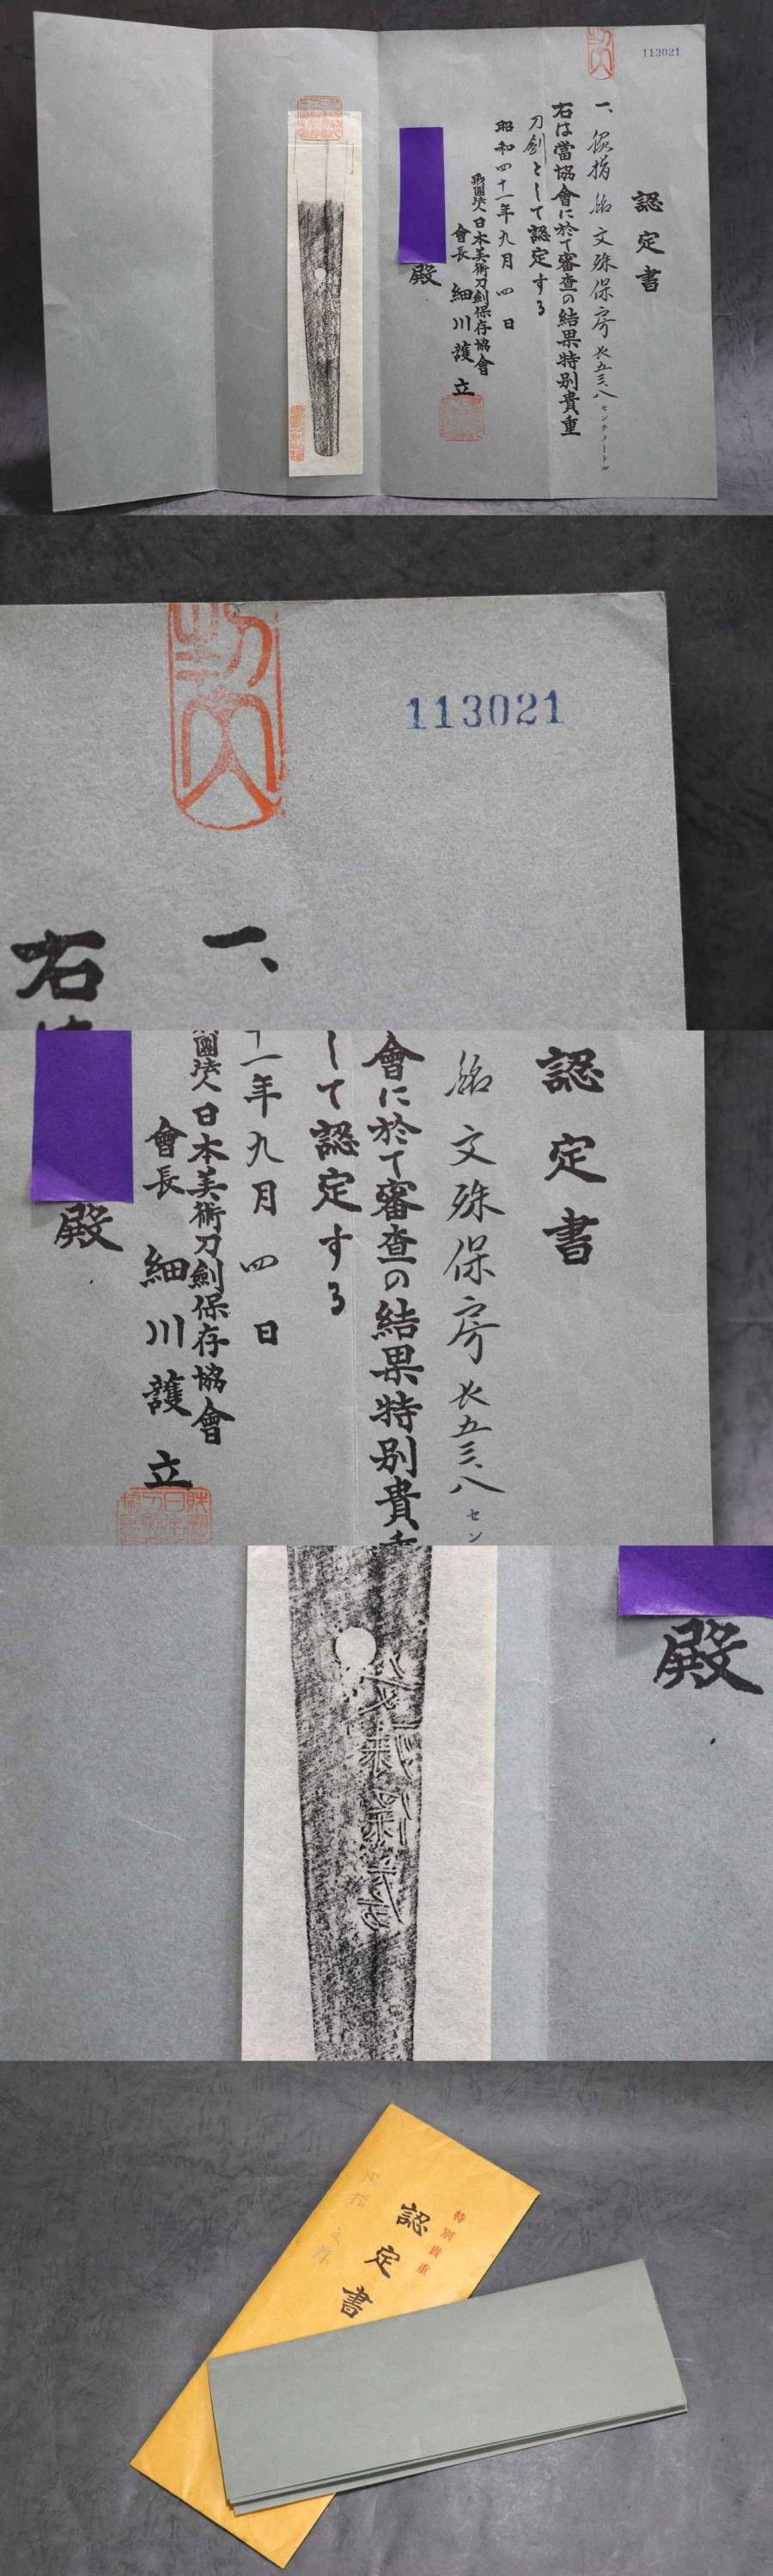 113021
認定書
一、脇指 銘 文殊保房 長五三、八センチメートル
右は當協會に於て審査の結果特別貴重
刀劍として認定する
昭和四十一年九月四日
財團法人日本美術刀劍保存協會
會長 細川護立
殿
113021
一、
右
認定書
銘 文殊保房 長五三、八セン
會に於て審査の結果特別貴重
して認定する
十一年九月四日
財團法人日本美術刀劍保存協會
會長 細川護立
殿
殿
文殊保房
特別貴重
認定書